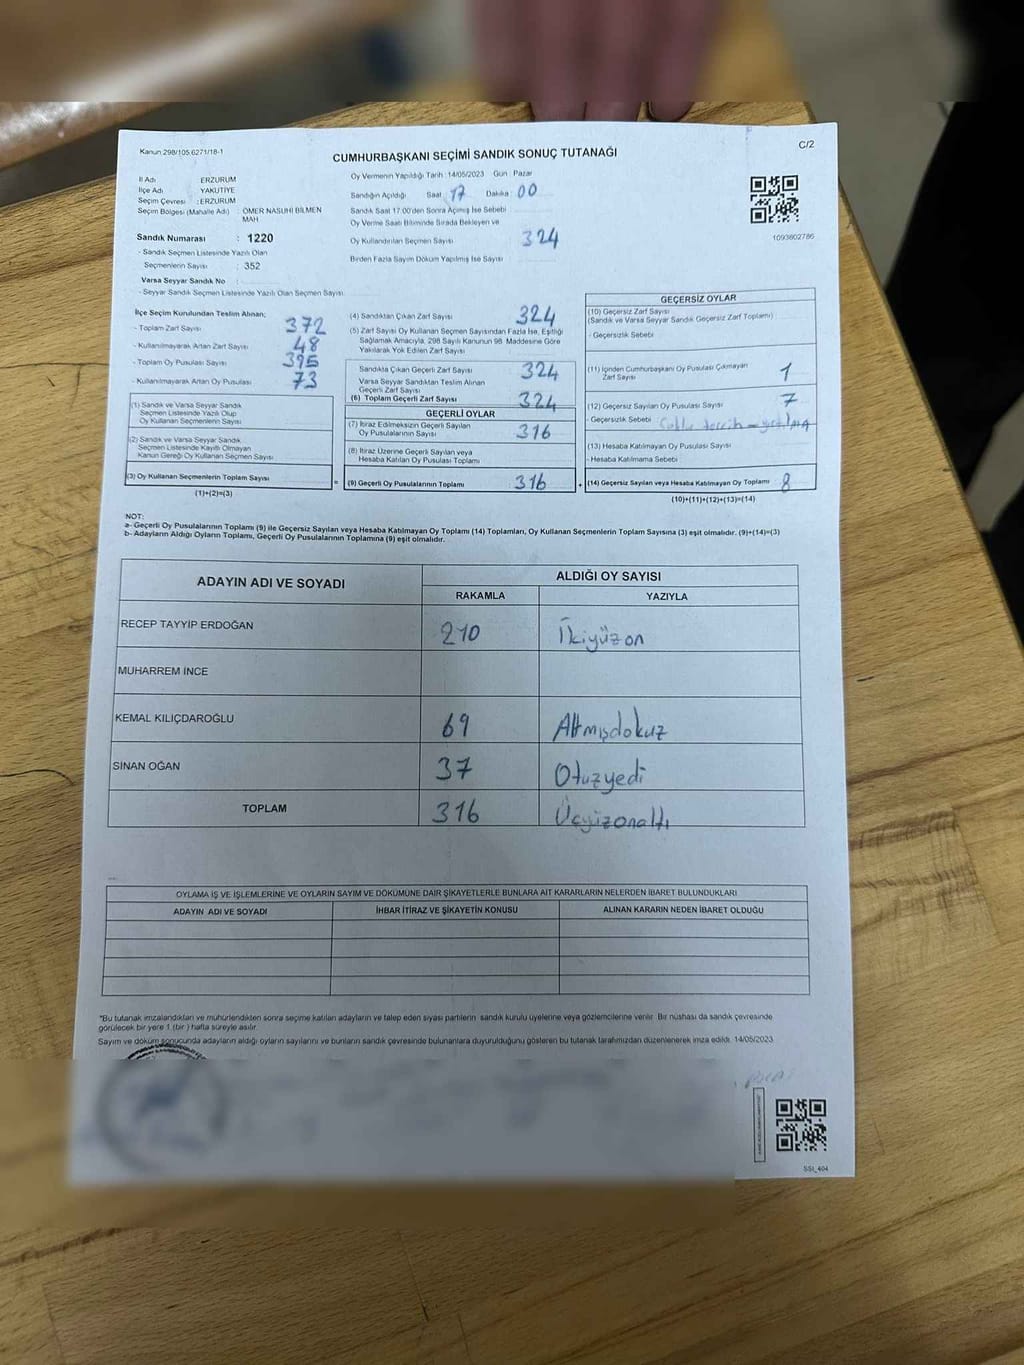 Kanun 298/105 6271/18-1
C/2
CUMHURBAŞKANI SEÇİMİ SANDIK SONUÇ TUTANAĞI
İl Adı ERZURUM
İlçe Adı YAKUTİYE
Seçim Çevresi : ERZURUM
Seçim Bölgesi (Mahalle Adı) : ÖMER NASUHİ BİLMEN MAH
Sandık Numarası : 1220
- Sandık Seçmen Listesinde Yazılı Olan
Seçmenlerin Sayısı : 352
Varsa Seyyar Sandık No :
- Seyyar Sandık Seçmen Listesinde Yazılı Olan Seçmen Sayısı:
Oy Vermenin Yapıldığı Tarih : 14/05/2023 Gün : Pazar
Sandığın Açıldığı Saat : 17 Dakika : 00
Sandık Saat 17:00'den Sonra Açılmış İse Sebebi
Oy Verme Saati Bitiminde Sırada Bekleyen ve
Oy Kullandırılan Seçmen Sayısı 324
Birden Fazla Sayım Döküm Yapılmış İse Sayısı
1093802786
İlçe Seçim Kurulundan Teslim Alınan;
- Toplam Zarf Sayısı 372
- Kullanılmayarak Artan Zarf Sayısı 48
- Toplam Oy Pusulası Sayısı 395
- Kullanılmayarak Artan Oy Pusulası 73
(1) Sandık ve Varsa Seyyar Sandık
Seçmen Listesinde Yazılı Olup
Oy Kullanan Seçmenlerin Sayısı
(2) Sandık ve Varsa Seyyar Sandık
Seçmen Listesinde Kayıtlı Olmayan
Kanun Gereği Oy Kullanan Seçmen Sayısı
(3) Oy Kullanan Seçmenlerin Toplam Sayısı
(1)+(2)=(3)
=
(4) Sandıktan Çıkan Zarf Sayısı 324
(5) Zarf Sayısı Oy Kullanan Seçmen Sayısından Fazla İse, Eşitliği
Sağlamak Amacıyla, 298 Sayılı Kanunun 98. Maddesine Göre
Yakılarak Yok Edilen Zarf Sayısı
Sandıkta Çıkan Geçerli Zarf Sayısı 324
Varsa Seyyar Sandıktan Teslim Alınan
Geçerli Zarf Sayısı
(6) Toplam Geçerli Zarf Sayısı 324
GEÇERLİ OYLAR
(7) İtiraz Edilmeksizin Geçerli Sayılan
Oy Pusulalarının Sayısı 316
(8) İtiraz Üzerine Geçerli Sayılan veya
Hesaba Katılan Oy Pusulası Toplamı
(9) Geçerli Oy Pusulalarının Toplamı 316
+
GEÇERSİZ OYLAR
(10) Geçersiz Zarf Sayısı
(Sandık ve Varsa Seyyar Sandık Geçersiz Zarf Toplamı)
- Geçersizlik Sebebi
(11) İçinden Cumhurbaşkanı Oy Pusulası Çıkmayan
Zarf Sayısı 1
(12) Geçersiz Sayılan Oy Pusulası Sayısı 7
- Geçersizlik Sebebi
(13) Hesaba Katılmayan Oy Pusulası Sayısı
- Hesaba Katılmama Sebebi
(14) Geçersiz Sayılan veya Hesaba Katılmayan Oy Toplamı 8
(10)+(11)+(12)+(13)=(14)
NOT:
a- Geçerli Oy Pusulalarının Toplamı (9) ile Geçersiz Sayılan veya Hesaba Katılmayan Oy Toplamı (14) Toplamları, Oy Kullanan Seçmenlerin Toplam Sayısına (3) eşit olmalıdır. (9)+(14)=(3)
b- Adayların Aldığı Oyların Toplamı, Geçerli Oy Pusulalarının Toplamına (9) eşit olmalıdır.
ADAYIN ADI VE SOYADI
ALDIĞI OY SAYISI
RAKAMLA YAZIYLA
RECEP TAYYİP ERDOĞAN 210 İkiyüzon
MUHARREM İNCE
KEMAL KILIÇDAROĞLU 69 Altmışdokuz
SİNAN OĞAN 37 Otuzyedi
TOPLAM 316 Üçyüzonaltı
OYLAMA İŞ VE İŞLEMLERİNE VE OYLARIN SAYIM VE DÖKÜMÜNE DAİR ŞİKAYETLERLE BUNLARA AİT KARARLARIN NELERDEN İBARET BULUNDUKLARI
ADAYIN ADI VE SOYADI İHBAR İTİRAZ VE ŞİKAYETİN KONUSU ALINAN KARARIN NEDEN İBARET OLDUĞU
*Bu tutanak imzalandıktan ve mühürlendikten sonra seçime katılan adayların ve talep eden siyasi partilerin sandık kurulu üyelerine veya gözlemcilerine verilir. Bir nüshası da sandık çevresinde
görülecek bir yere 1 (bir) hafta süreyle asılır.
Sayım ve döküm sonucunda adayların aldığı oyların sayılarını ve bunların sandık çevresinde bulunanlara duyurulduğunu gösteren bu tutanak tarafımızdan düzenlenerek imza edildi. 14/05/2023
SSI_404